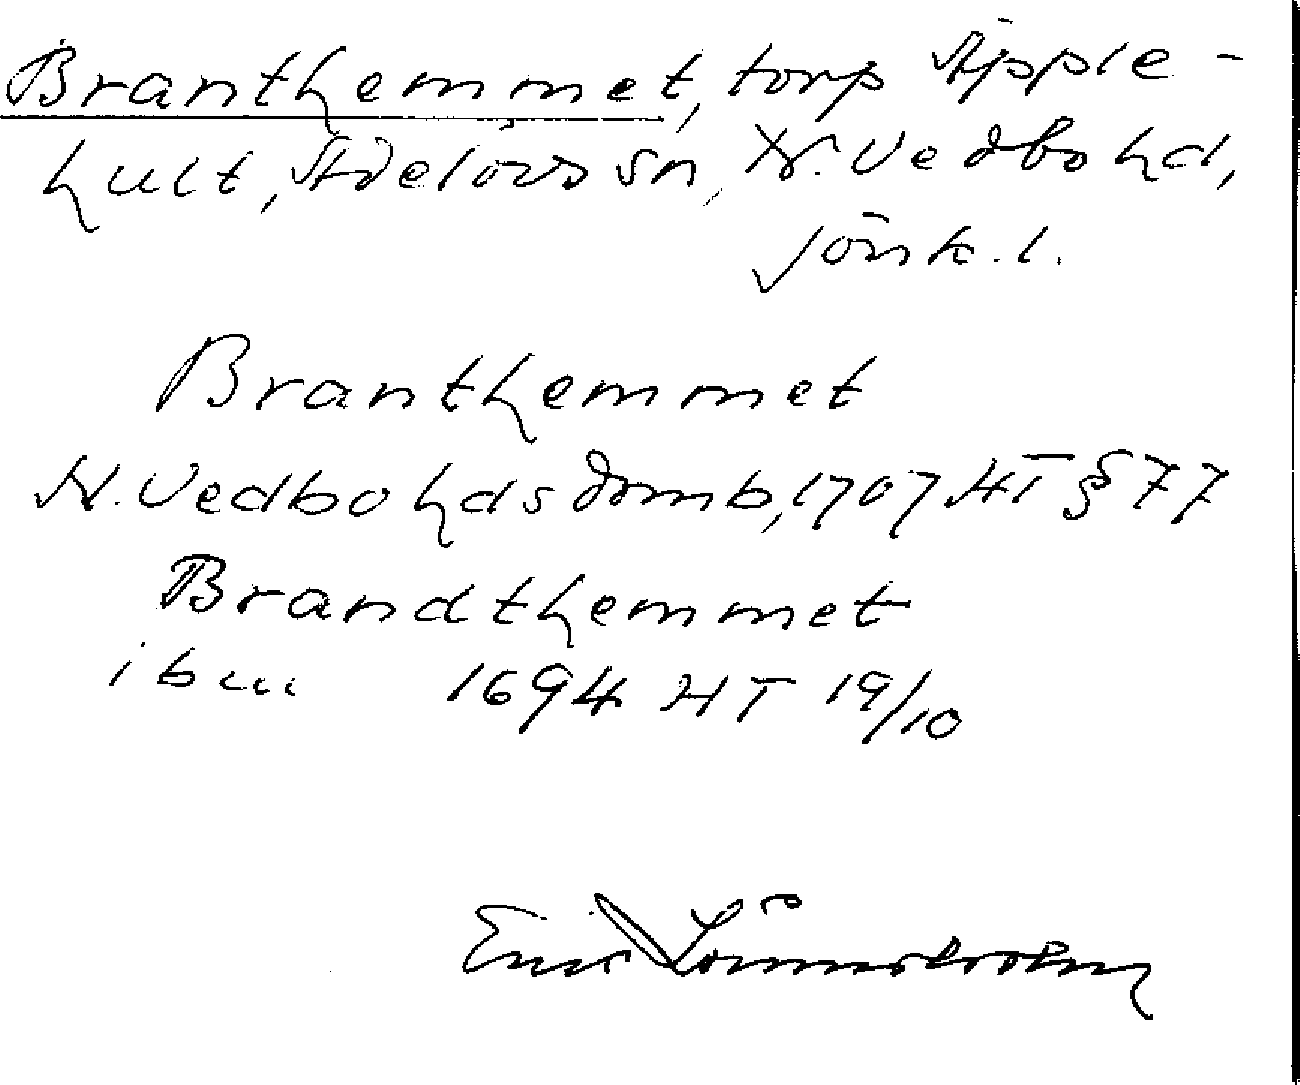 Branthemmet, torp Äpple-
hult, Adelövs sn, N. Vedbo hd,
Jönk. l.
Branthemmet
N. Vedbo hds domb, 1707 HT § 77
Brandthemmet
ibm 1694 HT 19/10
Eric Lönnerholm